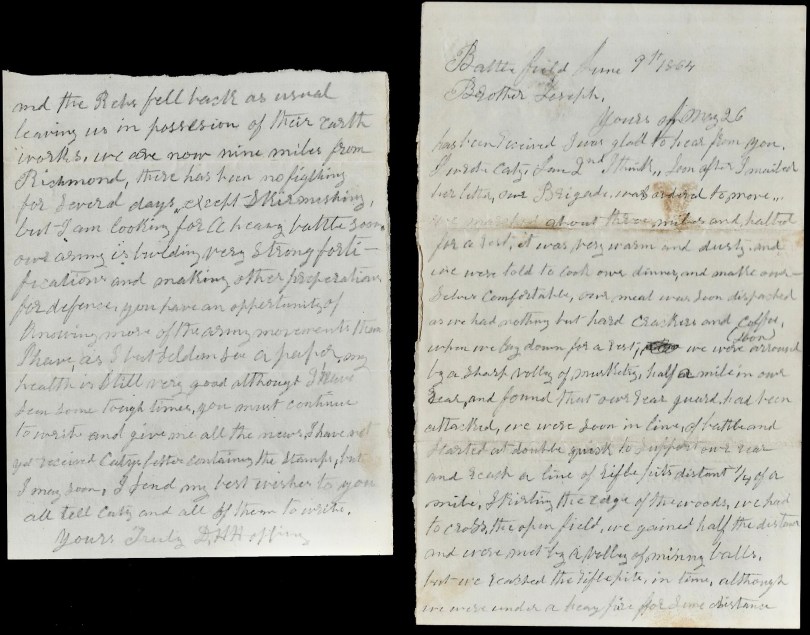 Battle field June 9th 1864
Brother Joseph,
Yours of May 26
has been received I was glad to hear from you.
I wrote Caty, Jun 2nd I think,, Soon after I mailed
her letter, our Brigade was ordered to move,..
we marched about three miles and halted
for a rest, it was very warm and dusty. and
we were told to cook our dinner, and make our-
Selves Comfortable, our meal was soon dispached
as we had nothing but hard crackers and Coffee,
when we lay down for a rest, we were Soon arroused
by a sharp volley of musketry, half a mile in our
rear, and found that our rear guard, had been
attacked, we were soon in line, of battle and
started at double quick to support our rear
and reach a line of rifle pits distant 1/4 of a
mile, Skirting the edge of the woods, we had
to cross, the open field, we gained half the distanc
and were met by a volley of minny balls,
but we reached the riflepits, in time, although
we were under a heavy fire for some distance
and the Rebs fell back as usual
leaving us in possession of their earth
works, we are now nine miles from
Richmond, there has been no fighting
for several days, except Skirmishing,
but I am looking for a heavy battle soon,
our army is building very strong forti-
fications and making other preperations
for defence, you have an oppertunity of
knowing more of the army movements then
I have, as I but seldom see a paper, my
health is still very good although I have
seen some tough times, you must continue
to write and give me all the news, I have not
yet received Catys letter containing the stamps, but
I may soon, I send my best wishes to you
all tell Caty and all of them to write.
Yours Truly